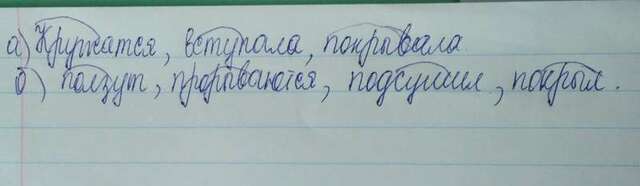 а) Кружатся, вступала, покрывала
б) ползут, прорываются, подсушил, покрыл.